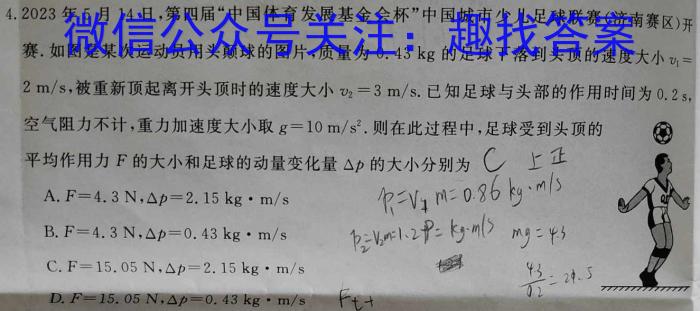 4.2023年5月14日,第四届“中国体育发展基金会杯”中国城市少儿足球联赛(济南赛区)开
微信公众号关注：趣找答案
赛.如图是某次运动员用头颠球的图片,质量为0.43 kg的足球下落到头顶的速度大小v₁=
2 m/s,被重新顶起离开头顶时的速度大小v₂=3 m/s.已知足球与头部的作用时间为0.2 s,
空气阻力不计,重力加速度大小取g=10 m/s².则在此过程中,足球受到头顶的
平均作用力F的大小和足球的动量变化量Δp的大小分别为 C 上正
A. F=4.3 N,Δp=2.15 kg·m/s
P₁=V₁m=0.86 kg·m/s
B. F=4.3 N,Δp=0.43 kg·m/s
P₂=V₂m=1.29 kg·m/s mg=4.3
C. F=15.05 N,Δp=2.15 kg·m/s
4.3/0.2=21.5
D. F=15.05 N,Δp=0.43 kg·m/s
Ft+